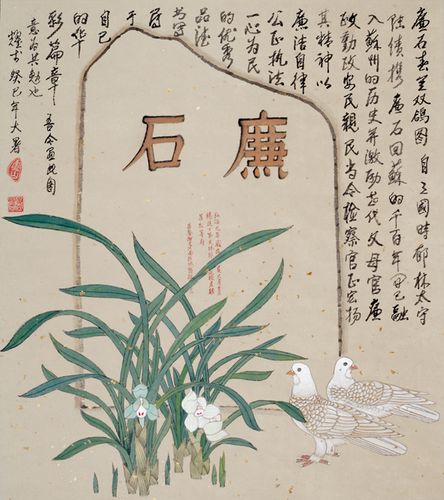 廉石春兰双鸽图 自三国时郁林太守
陆绩携廉石回蘇的千百年里已融
入蘇州的历史并激励代父母官廉
政勤政安民親民当今检察官正宏扬
其精神以
廉洁自律
公正执法
一心为民
的优秀
品德
书写
着
自己
的华
彩篇章 吾今画此图
意为共勉也
癸巳年大暑
廉石